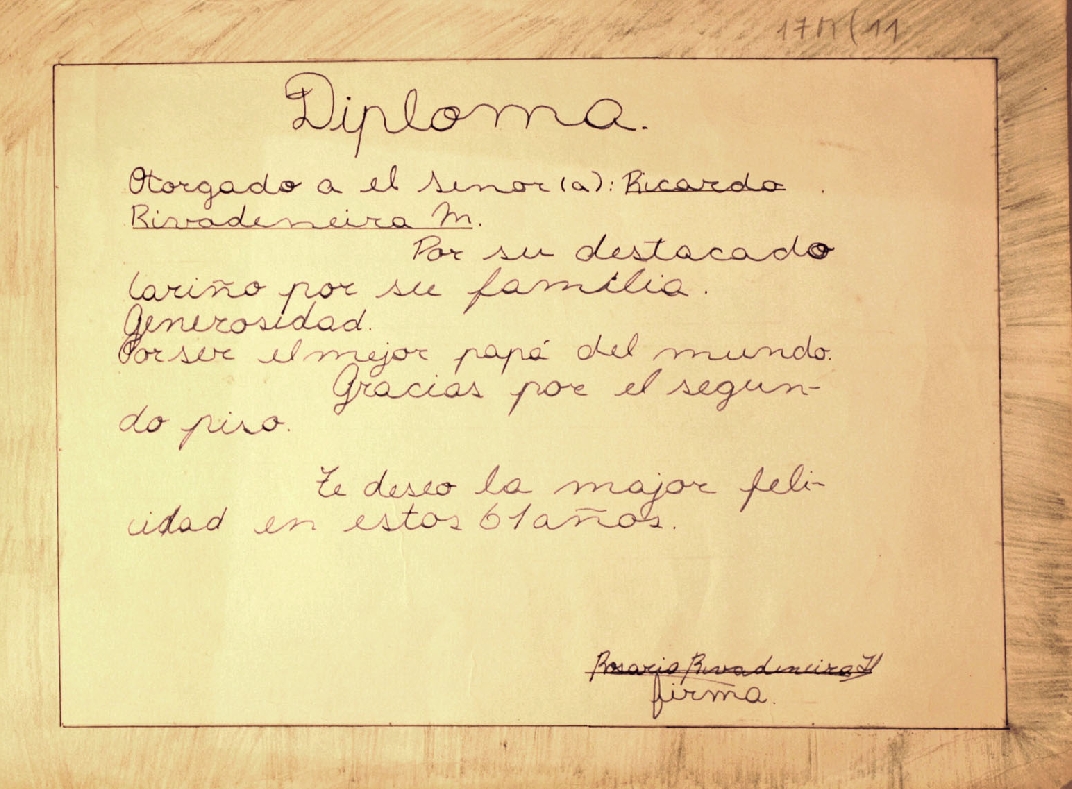 Diploma.
Otorgado a el senor(a): Ricardo
Rivadeneira M.
Por su destacado
cariño por su familia.
Generosidad.
Por ser el mejor papá del mundo.
Gracias por el segun-
do piso.
Te deseo la major feli-
cidad en estos 61 años.
Rosario Rivadeneira
firma.